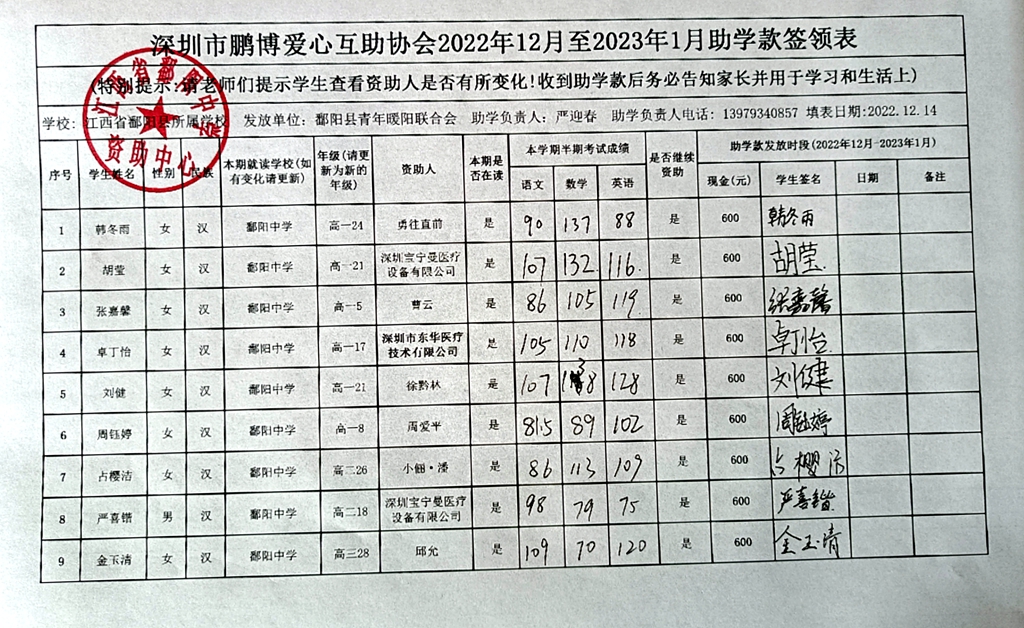 深圳市鹏博爱心互助协会2022年12月至2023年1月助学款签领表
(特别提示:请老师们提示学生查看资助人是否有所变化!收到助学款后务必告知家长并用于学习和生活上)
学校: 江西省鄱阳县所属学校 发放单位: 鄱阳县青年暖阳联合会 助学负责人: 严迎春 助学负责人电话: 13979340857 填表日期:2022.12.14
江西省鄱阳中学
资助中心
序号 学生姓名 性别 民族 本期就读学校(如有变化请更新) 年级(请更新为新的年级) 资助人 本期是否在读 本学期半期考试成绩 是否继续资助 助学款发放时段(2022年12月-2023年1月)
语文 数学 英语 现金(元) 学生签名 日期 备注
1 韩冬雨 女 汉 鄱阳中学 高一24 勇往直前 是 90 137 88 是 600 韩冬雨
2 胡莹 女 汉 鄱阳中学 高一21 深圳宝宁曼医疗设备有限公司 是 107 132 116. 是 600 胡莹.
3 张嘉馨 女 汉 鄱阳中学 高一5 曹云 是 86 105 119 是 600 张嘉馨
4 卓丁怡 女 汉 鄱阳中学 高一17 深圳市东华医疗技术有限公司 是 105 110 118 是 600 卓丁怡
5 刘健 女 汉 鄱阳中学 高一21 徐黔林 是 107 138 128 是 600 刘健
6 周钰婷 女 汉 鄱阳中学 高一8 周爱平 是 81.5 89 102 是 600 周钰婷
7 占樱洁 女 汉 鄱阳中学 高二26 小佃·潘 是 86 113 109 是 600 占樱洁
8 严喜锴 男 汉 鄱阳中学 高二18 深圳宝宁曼医疗设备有限公司 是 98 79 75 是 600 严喜锴
9 金玉清 女 汉 鄱阳中学 高三28 邱允 是 109 70 120 是 600 金玉清